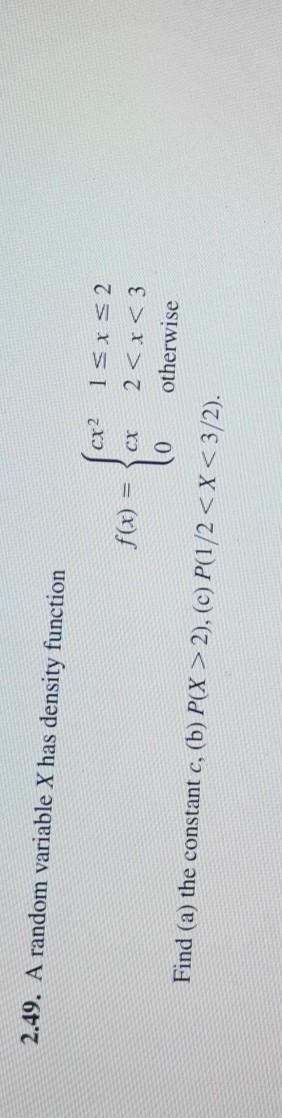 2.49. A random variable X has density function
f(x) = { cx² 1 ≤ x ≤ 2
cx 2 < x < 3
0 otherwise
Find (a) the constant c, (b) P(X > 2), (c) P(1/2 < X < 3/2).